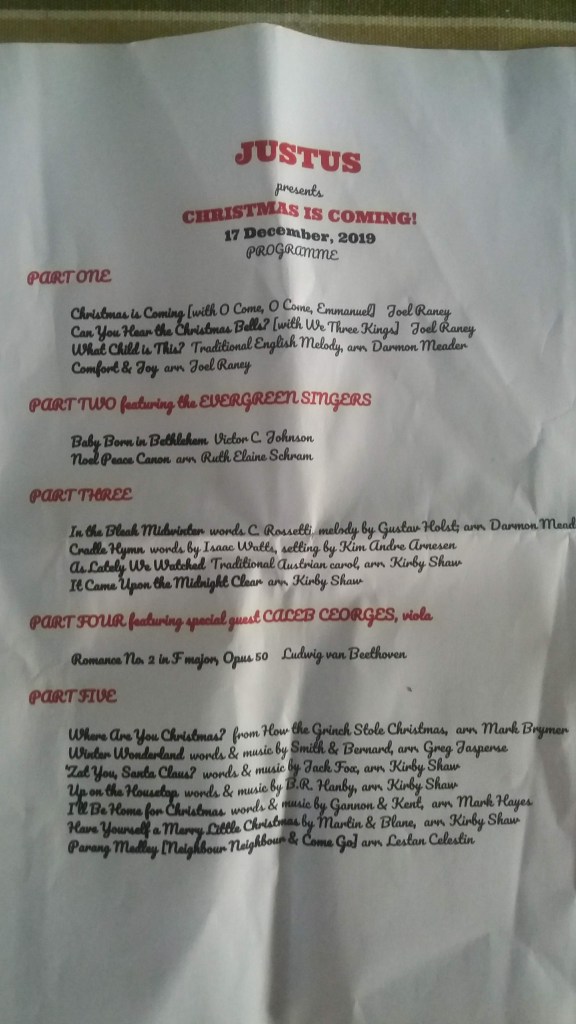 JUSTUS
presents
CHRISTMAS IS COMING!
17 December, 2019
PROGRAMME
PART ONE
Christmas is Coming [with O Come, O Come, Emmanuel] Joel Raney
Can You Hear the Christmas Bells? [with We Three Kings] Joel Raney
What Child is This? Traditional English Melody, arr. Darmon Meader
Comfort & Joy arr. Joel Raney
PART TWO featuring the EVERGREEN SINGERS
Baby Born in Bethlehem Victor C. Johnson
Noel Peace Canon arr. Ruth Elaine Schram
PART THREE
In the Bleak Midwinter words C. Rossetti, melody by Gustav Holst; arr. Darmon Mead
Cradle Hymn words by Isaac Watts, setting by Kim Andre Arnesen
As Lately We Watched Traditional Austrian carol, arr. Kirby Shaw
It Came Upon the Midnight Clear arr. Kirby Shaw
PART FOUR featuring special guest CALEB GEORGES, viola
Romance No. 2 in F major, Opus 50 Ludwig van Beethoven
PART FIVE
Where Are You Christmas? from How the Grinch Stole Christmas, arr. Mark Brymer
Winter Wonderland words & music by Smith & Bernard, arr. Greg Jasperse
'Zat You, Santa Claus? words & music by Jack Fox, arr. Kirby Shaw
Up on the Housetop words & music by B.R. Hanby, arr. Kirby Shaw
I'll Be Home for Christmas words & music by Gannon & Kent, arr. Mark Hayes
Have Yourself a Merry Little Christmas by Martin & Blane, arr. Kirby Shaw
Parang Medley [Neighbour Neighbour & Come Go] arr. Lestan Celestin